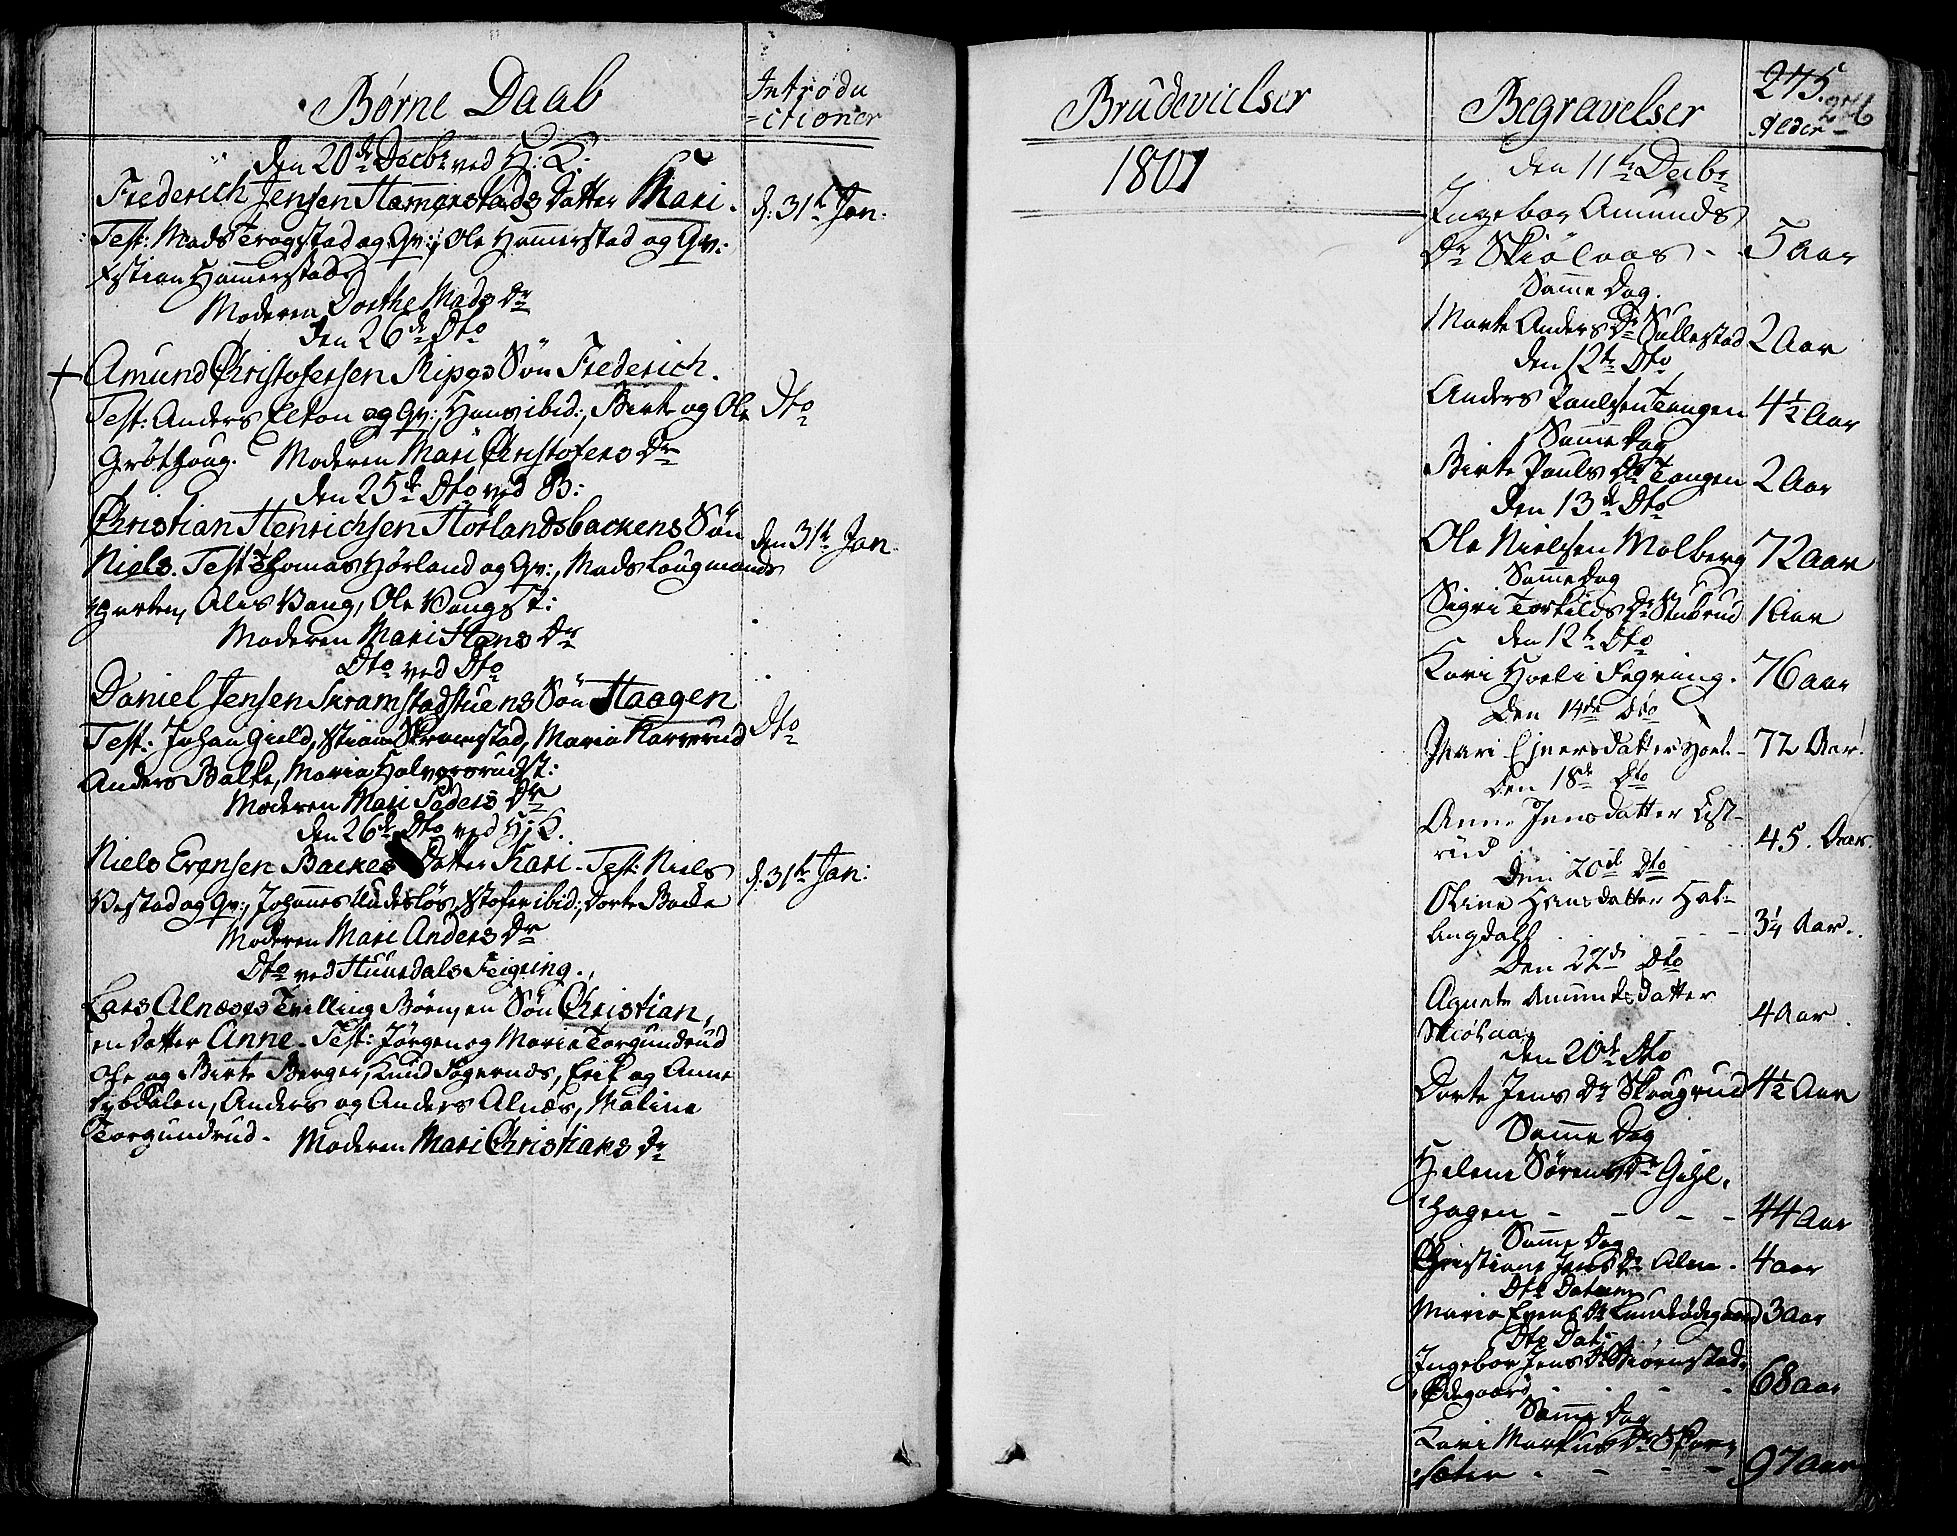 Børne Daab
Introdu
=ctioner
den 20de Decbr ved H: K:
Frederich Jensen Hammerstads Datter Mari.
d: 31te Jan:
Test: Mads Trogstad og Qv:, Ole Hammerstad og Qv:
Xstian Hammerstad
Moderen Dorthe Mads Dr
den 26de Dto
Amund Christofersen Rispes Søn Frederich.
Test: Anders Elton og Qv:, Hans ibid:, Birte og Ole
Dto
Grøthoug. Moderen Mari Christofers Dr
den 25de Dto ved B:
Christian Henrichsen Hørlandsbackens Søn
den 31te Jan:
Niels. Test: Thomas Hørland og Qv:, Mads Lougmands
Moderen Mari Hans Dr
Dto ved Dto
Daniel Jensen Skramstadstuens Søn Haagen
Dto
Test: Johan Gield, Xstian Skramstad, Maria
Anders Balke, Maria Halvorsrudst:
Moderen Mari Peders Dr
den 26de Dto ved H: K.
Niels Evensen Backes Datter Kari. Test: Niels
d: 31te Jan:
Vestad og Qv:, Johannes Xstofer ibid:, Dorte Backe
Moderen Mari Anders Dr
Dto ved Huusdals Feigring.
Lars Alnæses Tvilling Børn, en Søn Christian,
en Datter Anne. Test: Jørgen og Maria Torgundrud
Ole og Birte Berger, Knud Sogernes, Erik og Anne
Dybdalen, Anders og Anders Alnæs, Maline
Torgundrud. Moderen Mari Christians Dr
Brudevielser
1801
Begravelser
275.
Alder
den 11te Decbr
Ingebor Amunds
Dr Skiølaas - 5 aar
Samme Dag.
Marte Anders Dr Sallestad 2 Aar
den 12te Dto
Anders Paulsen Tangen 4½ Aar
Samme Dag
Birte Pauls Dr Tangen 2 Aar
den 13de Dto
Ole Nielsen Molberg 72 aar
Samme Dag
Sigri Torkilds Dr Stubrud 1 Aar
den 12te Dto
Kari Hoeli Fegring. 76 aar
Den 14de Dto
Mari Ejnersdatter Hoel - 72 Aar
Den 18de Dto
Anne Jensdatter List-
rud 45. Aar.
Den 20de Dto
Oline Hansdatter Hal-
langdall 3¼ Aar.
Den 22de Dto
Agnete Amundsdatter
Skiølaas 4 Aar
den 20de Dto
Dorte Jens Dr Skougrud 4½ Aar
Samme Dag
Helene Sørens Dr Gihl.
Hagen - - - - 44 Aar
Samme Dag
Christiane Jens Dr Alm - 4 aar
Dto Datum
Maria Evens Dr Lundødegaard 3 aar
Dto Dat:
Ingebor Jens Dr Biørnstad
Ødegaard - - - 68 aar
Samme Dag
Kari Markus Dr
sæter - - - - 97 aar